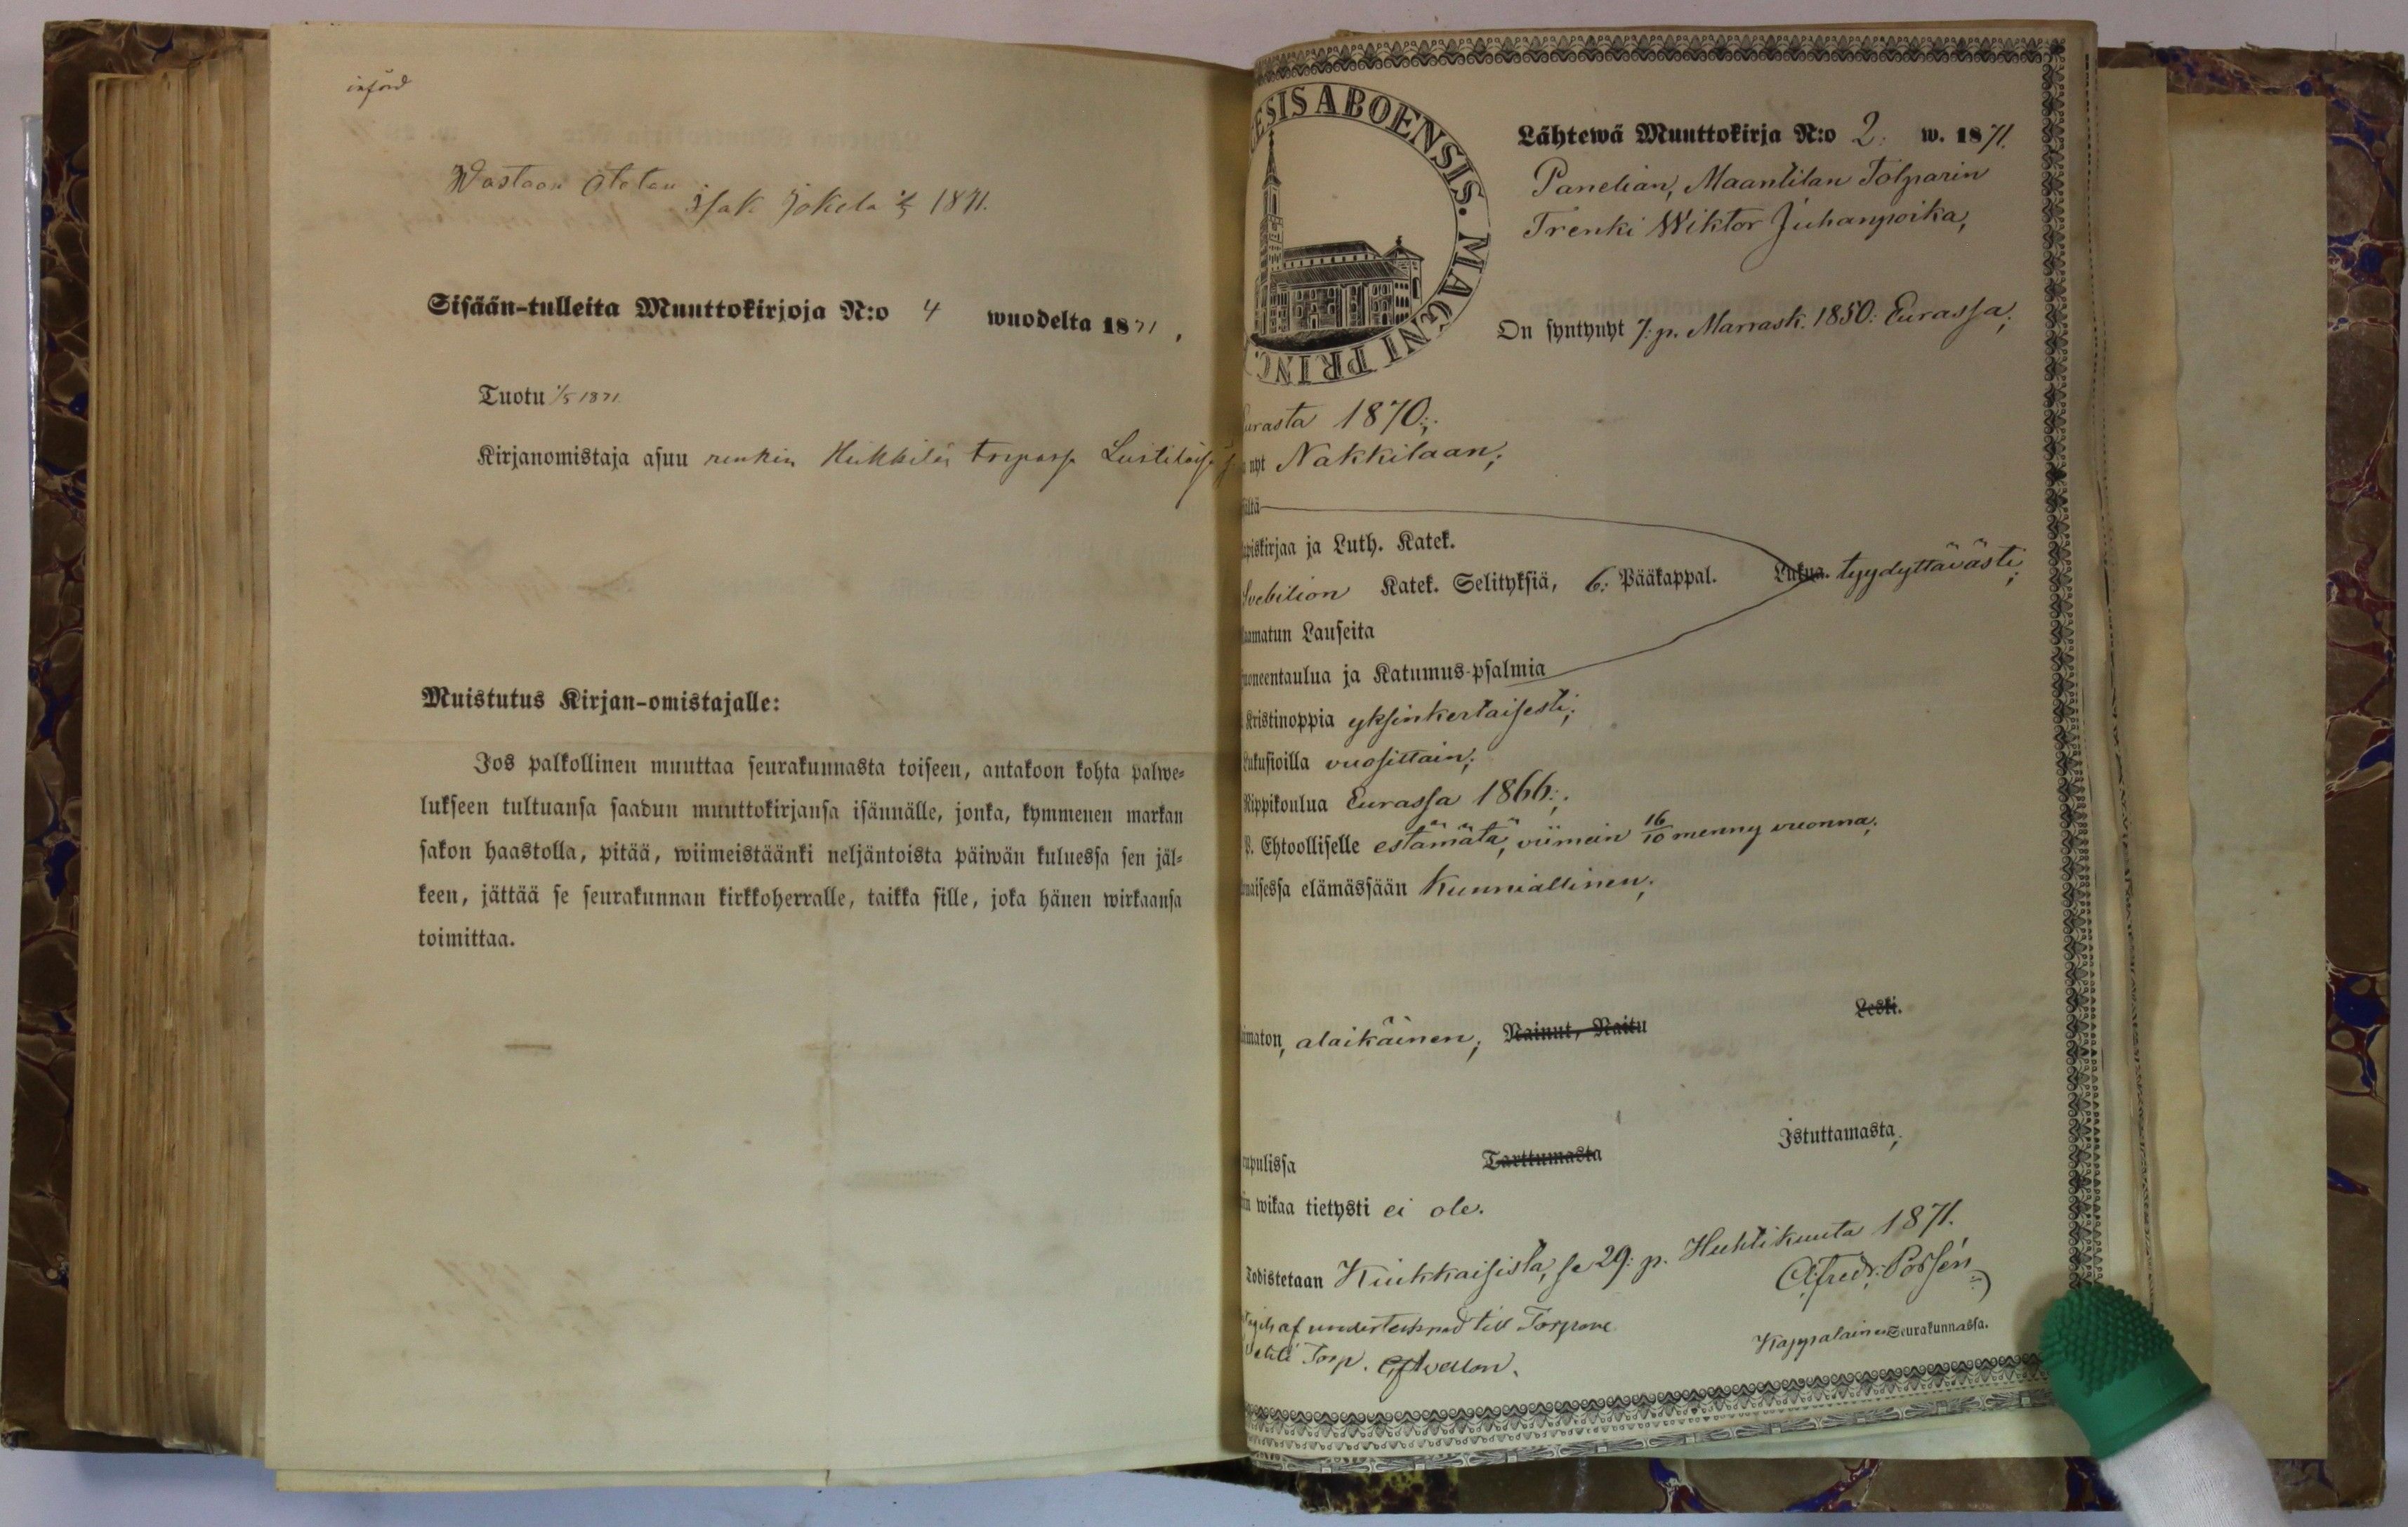 införd
Wastaan otetan
Isak Jokela 1/5 1871.
Sisään-tulleita Muuttokirjoja N:o 4 wuodelta 1871.
Tuotu 1/5 1871
Kirjanomistaja asuu renkin torpassa
Muistutus Kirjan-omistajalle:
Jos palkollinen muuttaa seurakunnasta toiseen, antakoon kohta palwe=
lukseen tultuansa saadun muuttokirjansa isännälle, jonka, kymmenen markan
sakon haastolla, pitää, wiimeistäänki neljäntoista päiwän kuluessa sen jäl=
keen, jättää se seurakunnan kirkkoherralle, taikka sille, joka hänen wirkaansa
toimittaa.
ESIS ABOENSIS. MAGNI PRINC
Lähtewä Muuttokirja N:o 2. w. 1871.
Panelian, Maantilan Tolparin
Trenki Wiktor Juhanpoika,
On syntynyt 7: p. Marrask. 1850: Eurassa;
urasta 1870:;
nyt Nakkilaan;
ältä
piskirjaa ja Luth. Katek.
Svebilion Katek. Selityksiä, 6: Pääkappal. Lukua. tyydyttävästi;
amatun Lauseita
uoneentaulua ja Katumus-psalmia
Kristinoppia yksinkertaisesti;
Lukusioilla vuosittain;
Rippikoulua Eurassa 1866:;
P. Ehtoolliselle estämätä, viimein 16/10 menny vuonna;
maisessa elämässään Kunniallinen;
imaton, alaikäinen; Nainut, Naitu Leski.
upulissa Tarttumasta Istuttamasta;
in wikaa tietysti ei ole.
Todistetaan Kiukkaisista, se 29: p. Huhtikuuta 1871.
Alfred: Posén
Kappalainen Seurakunnassa.
af undertecknad till Torpare
Torp.